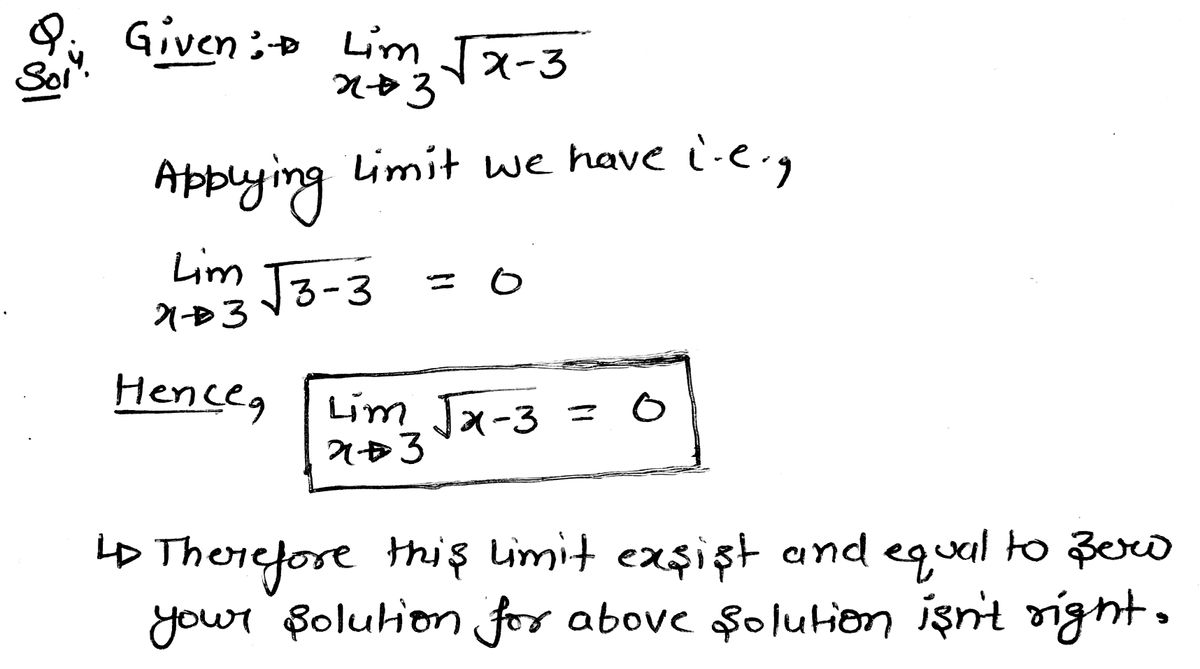 Q.
Solⁿ. Given :→ Lim x→3 √x-3
Applying limit we have i.e.,
Lim x→3 √3-3 = 0
Hence, Lim x→3 √x-3 = 0
↳ Therefore this limit exsist and equal to zero
your solution for above solution isn't right.